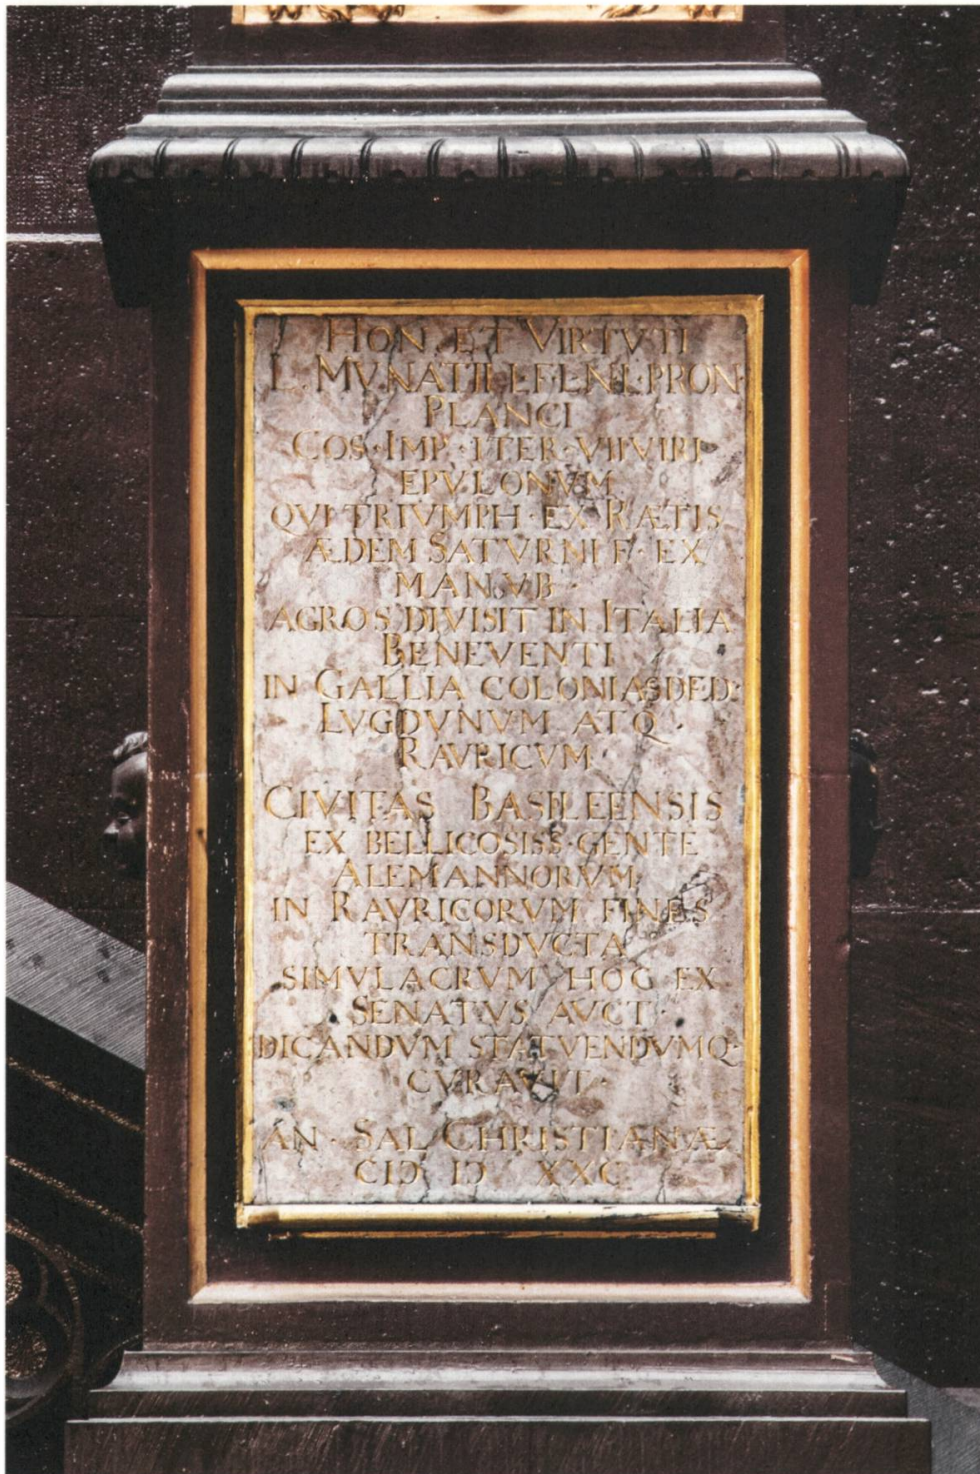 HON. ET VIRTVTI
L. MVNATII L·F·L·N·L·PRON·
PLANCI
COS·IMP·ITER·VIIVIRI
EPVLONVM
QVI TRIVMPH·EX RÆTIS
ÆDEM SATVRNI F·EX
MANVB·
AGROS DIVISIT IN ITALIA
BENEVENTI
IN GALLIA COLONIAS DED·
LVGDVNVM ATQ·
RAVRICVM
CIVITAS BASILEENSIS
EX BELLICOSISS·GENTE
ALEMANNORVM
IN RAVRICORVM FINES
TRANSDVCTA
SIMVLACRVM HOC EX
SENATVS AVCT·
DICANDVM STATVENDVMQ·
CVRAVIT·
AN·SAL CHRISTIANÆ
CIↃ IↃ XXC